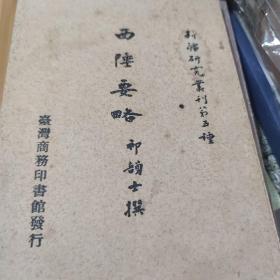 新疆研究叢刊第五種
西陲要略 祁韻士撰
臺灣商務印書館發行